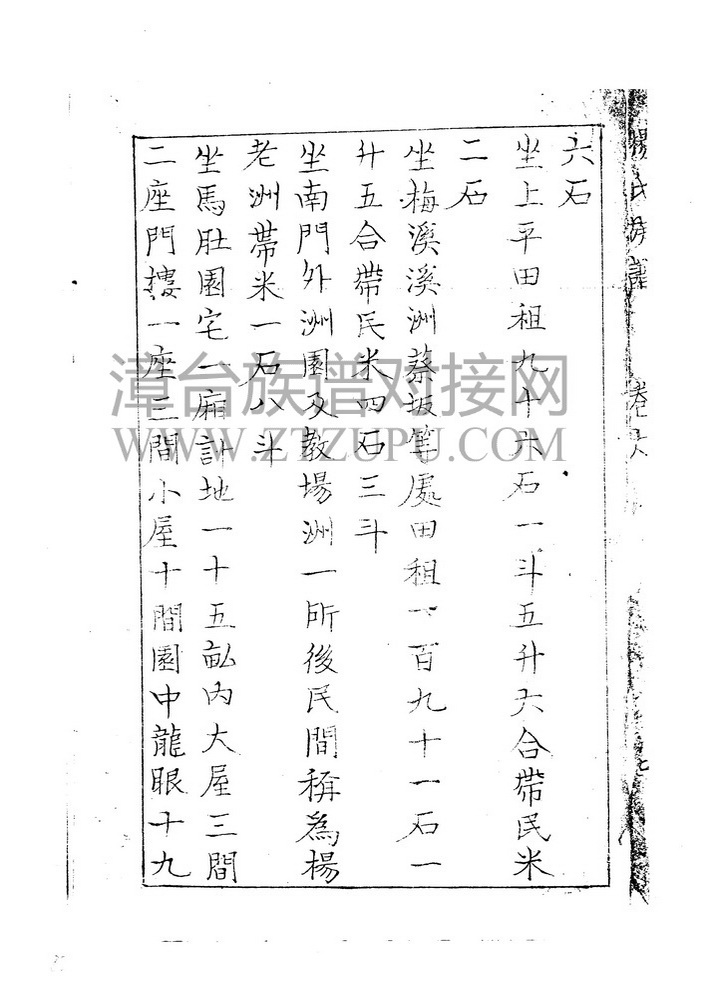 六石
坐上平田租九十六石一斗五升六合帶民米
二石
坐梅溪溪洲蔡坂等處田租一百九十一石一
升五合帶民米四石三斗
坐南門外洲園及教場洲一所後民間稱為楊
老洲帶米一石八斗
坐馬肚園宅一廂計地一十五畝內大屋三間
二座門摟一座三間小屋十間園中龍眼十九
楊氏族譜 卷
漳台族谱对接网
WWW.ZTZUPU.COM